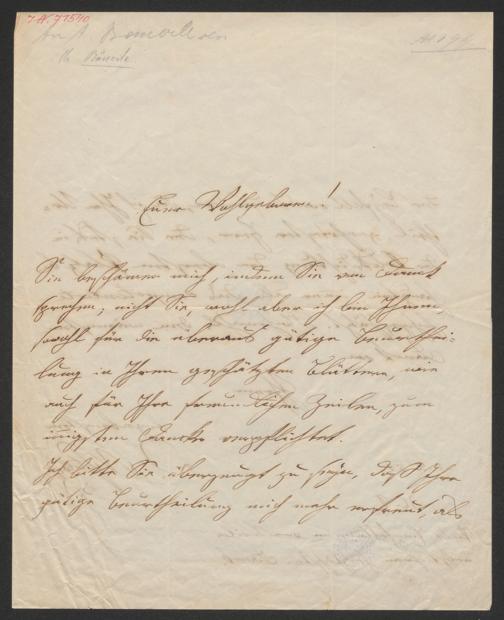 An A. 
Th. Bäuerle
Euer Wohlgeboren!
Sie beschämen mich, indem Sie von Dank
sprechen; nicht Sie, wohl aber ich bin Ihnen,
sowohl für die überaus gütige Beurthei-
lung in Ihren geschätzten Blättern, wie
auch für Ihre freundlichen Zeilen, zum
innigsten Danke verpflichtet.
Ich bitte Sie überzeugt zu seyn, daß Ihre
gütige Beurtheilung mich mehr erfreut, als